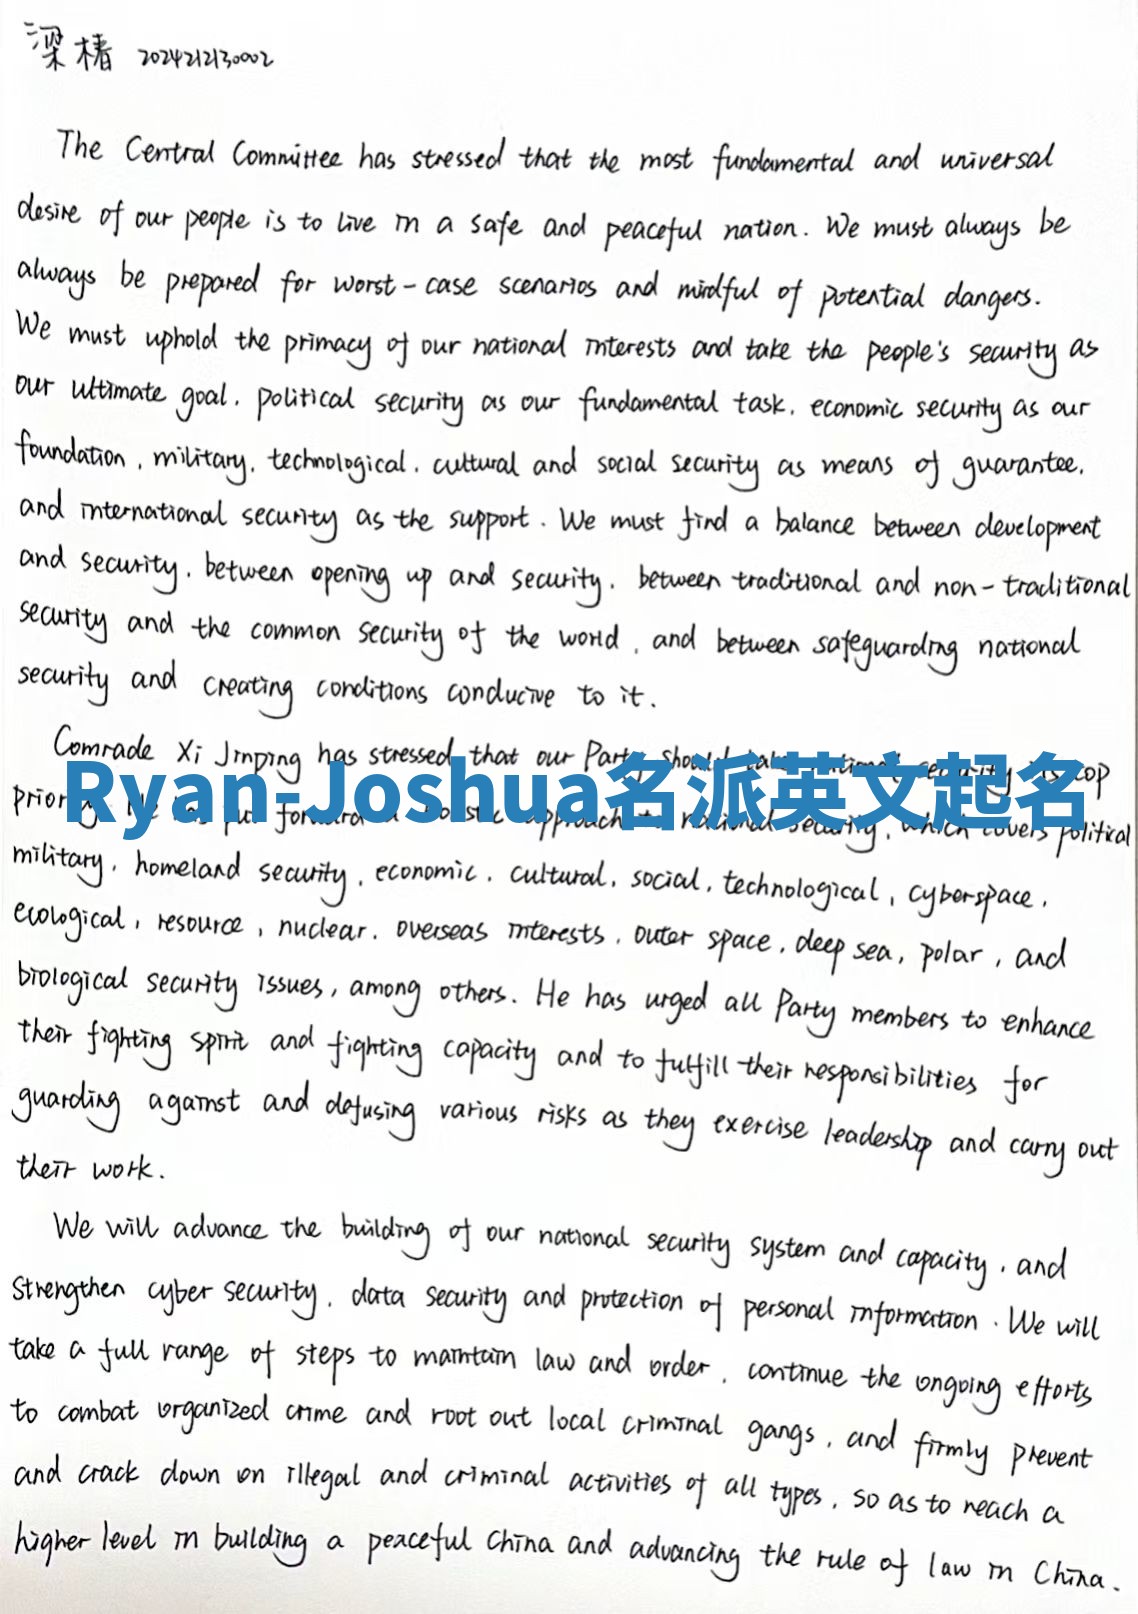 梁椿 2024212130002
The Central Committee has stressed that the most fundamental and universal
desire of our people is to live in a safe and peaceful nation. We must always be
always be prepared for worst-case scenarios and mindful of potential dangers.
We must uphold the primacy of our national interests and take the people's security as
our ultimate goal, political security as our fundamental task, economic security as our
foundation, military, technological, cultural and social security as means of guarantee,
and international security as the support. We must find a balance between development
and security, between opening up and security, between traditional and non-traditional
security and the common security of the world, and between safeguarding national
security and creating conditions conducive to it.
Comrade Xi Jinping has stressed that our Party should top
Ryan-Joshua名派英文起名
which covers political
military, homeland security, economic, cultural, social, technological, cyberspace,
ecological, resource, nuclear, overseas interests, outer space, deep sea, polar, and
biological security issues, among others. He has urged all Party members to enhance
their fighting spirit and fighting capacity and to fulfill their responsibilities for
guarding against and defusing various risks as they exercise leadership and carry out
their work.
We will advance the building of our national security system and capacity, and
strengthen cyber security, data security and protection of personal information. We will
take a full range of steps to maintain law and order, continue the ongoing efforts
to combat organized crime and root out local criminal gangs, and firmly prevent
and crack down on illegal and criminal activities of all types, so as to reach a
higher level in building a peaceful China and advancing the rule of law in China.